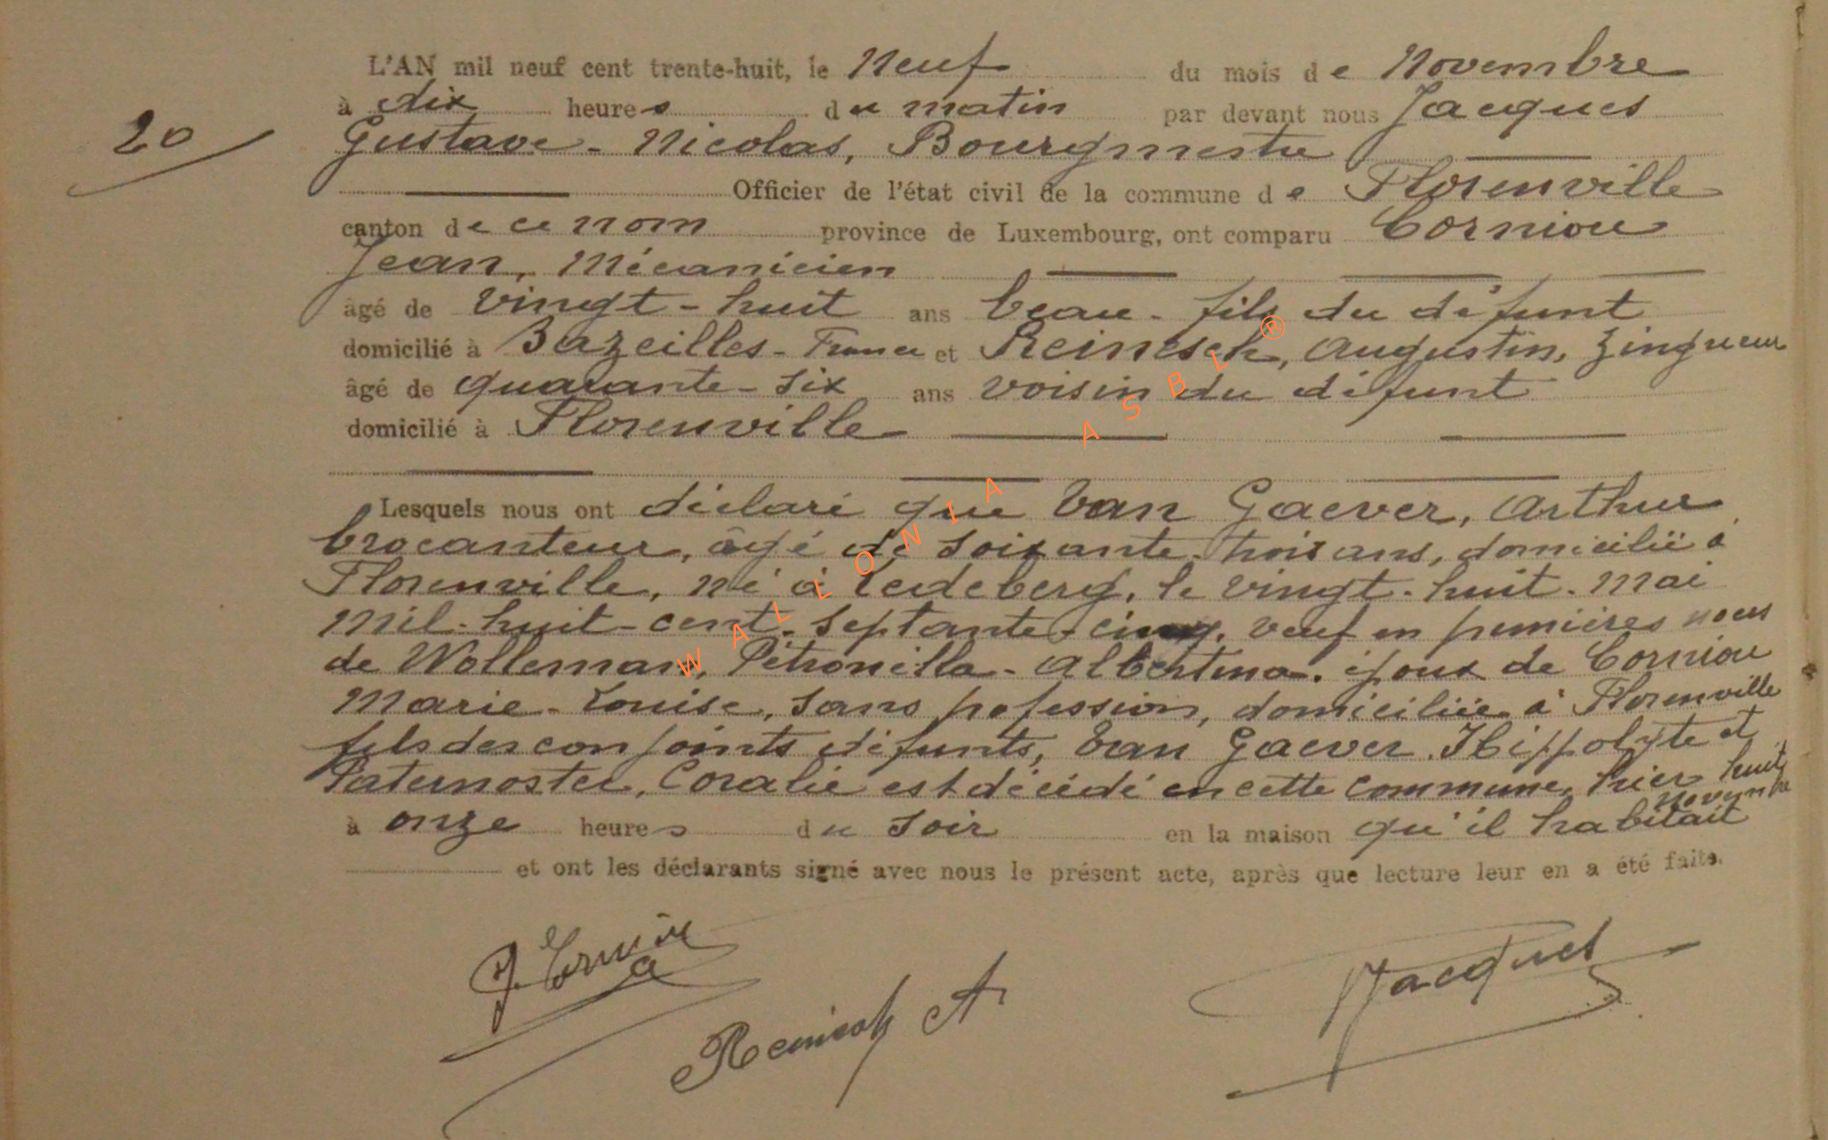 L'AN mil neuf cent trente-huit, le neuf du mois de Novembre
20
à dix heures du matin par devant nous Jacques
Gustave - Nicolas, Bourgmestre
Officier de l'état civil de la commune de Florenville
canton de ce nom province de Luxembourg, ont comparu Corniou
Jean, Mécanicien
âgé de vingt-huit ans beau-fils du défunt
domicilié à Bazeilles - France et Reinisch, Augustin, zingueur
âgé de quarante-six ans voisin du défunt
domicilié à Florenville
Lesquels nous ont déclaré que Van Gaever, Arthur
brocanteur, âgé de soixante-trois ans, domicilié à
Florenville, né à Ledeberg, le vingt-huit-Mai
mil-huit-cent-septante-cinq, veuf en premières noces
de Wolleman, Pétronilla-Albertina. époux de Corniou
Marie-Louise, sans profession, domiciliée à Florenville
fils des conjoints défunts, Van Gaever Hippolyte et
Paternoster, Coralie est décédé en cette commune, hier huit
novembre
à onze heures du soir en la maison qu'il habitait
et ont les déclarants signé avec nous le présent acte, après que lecture leur en a été faite.
Reinisch A
Jacques
WALLONIA ASBL ®